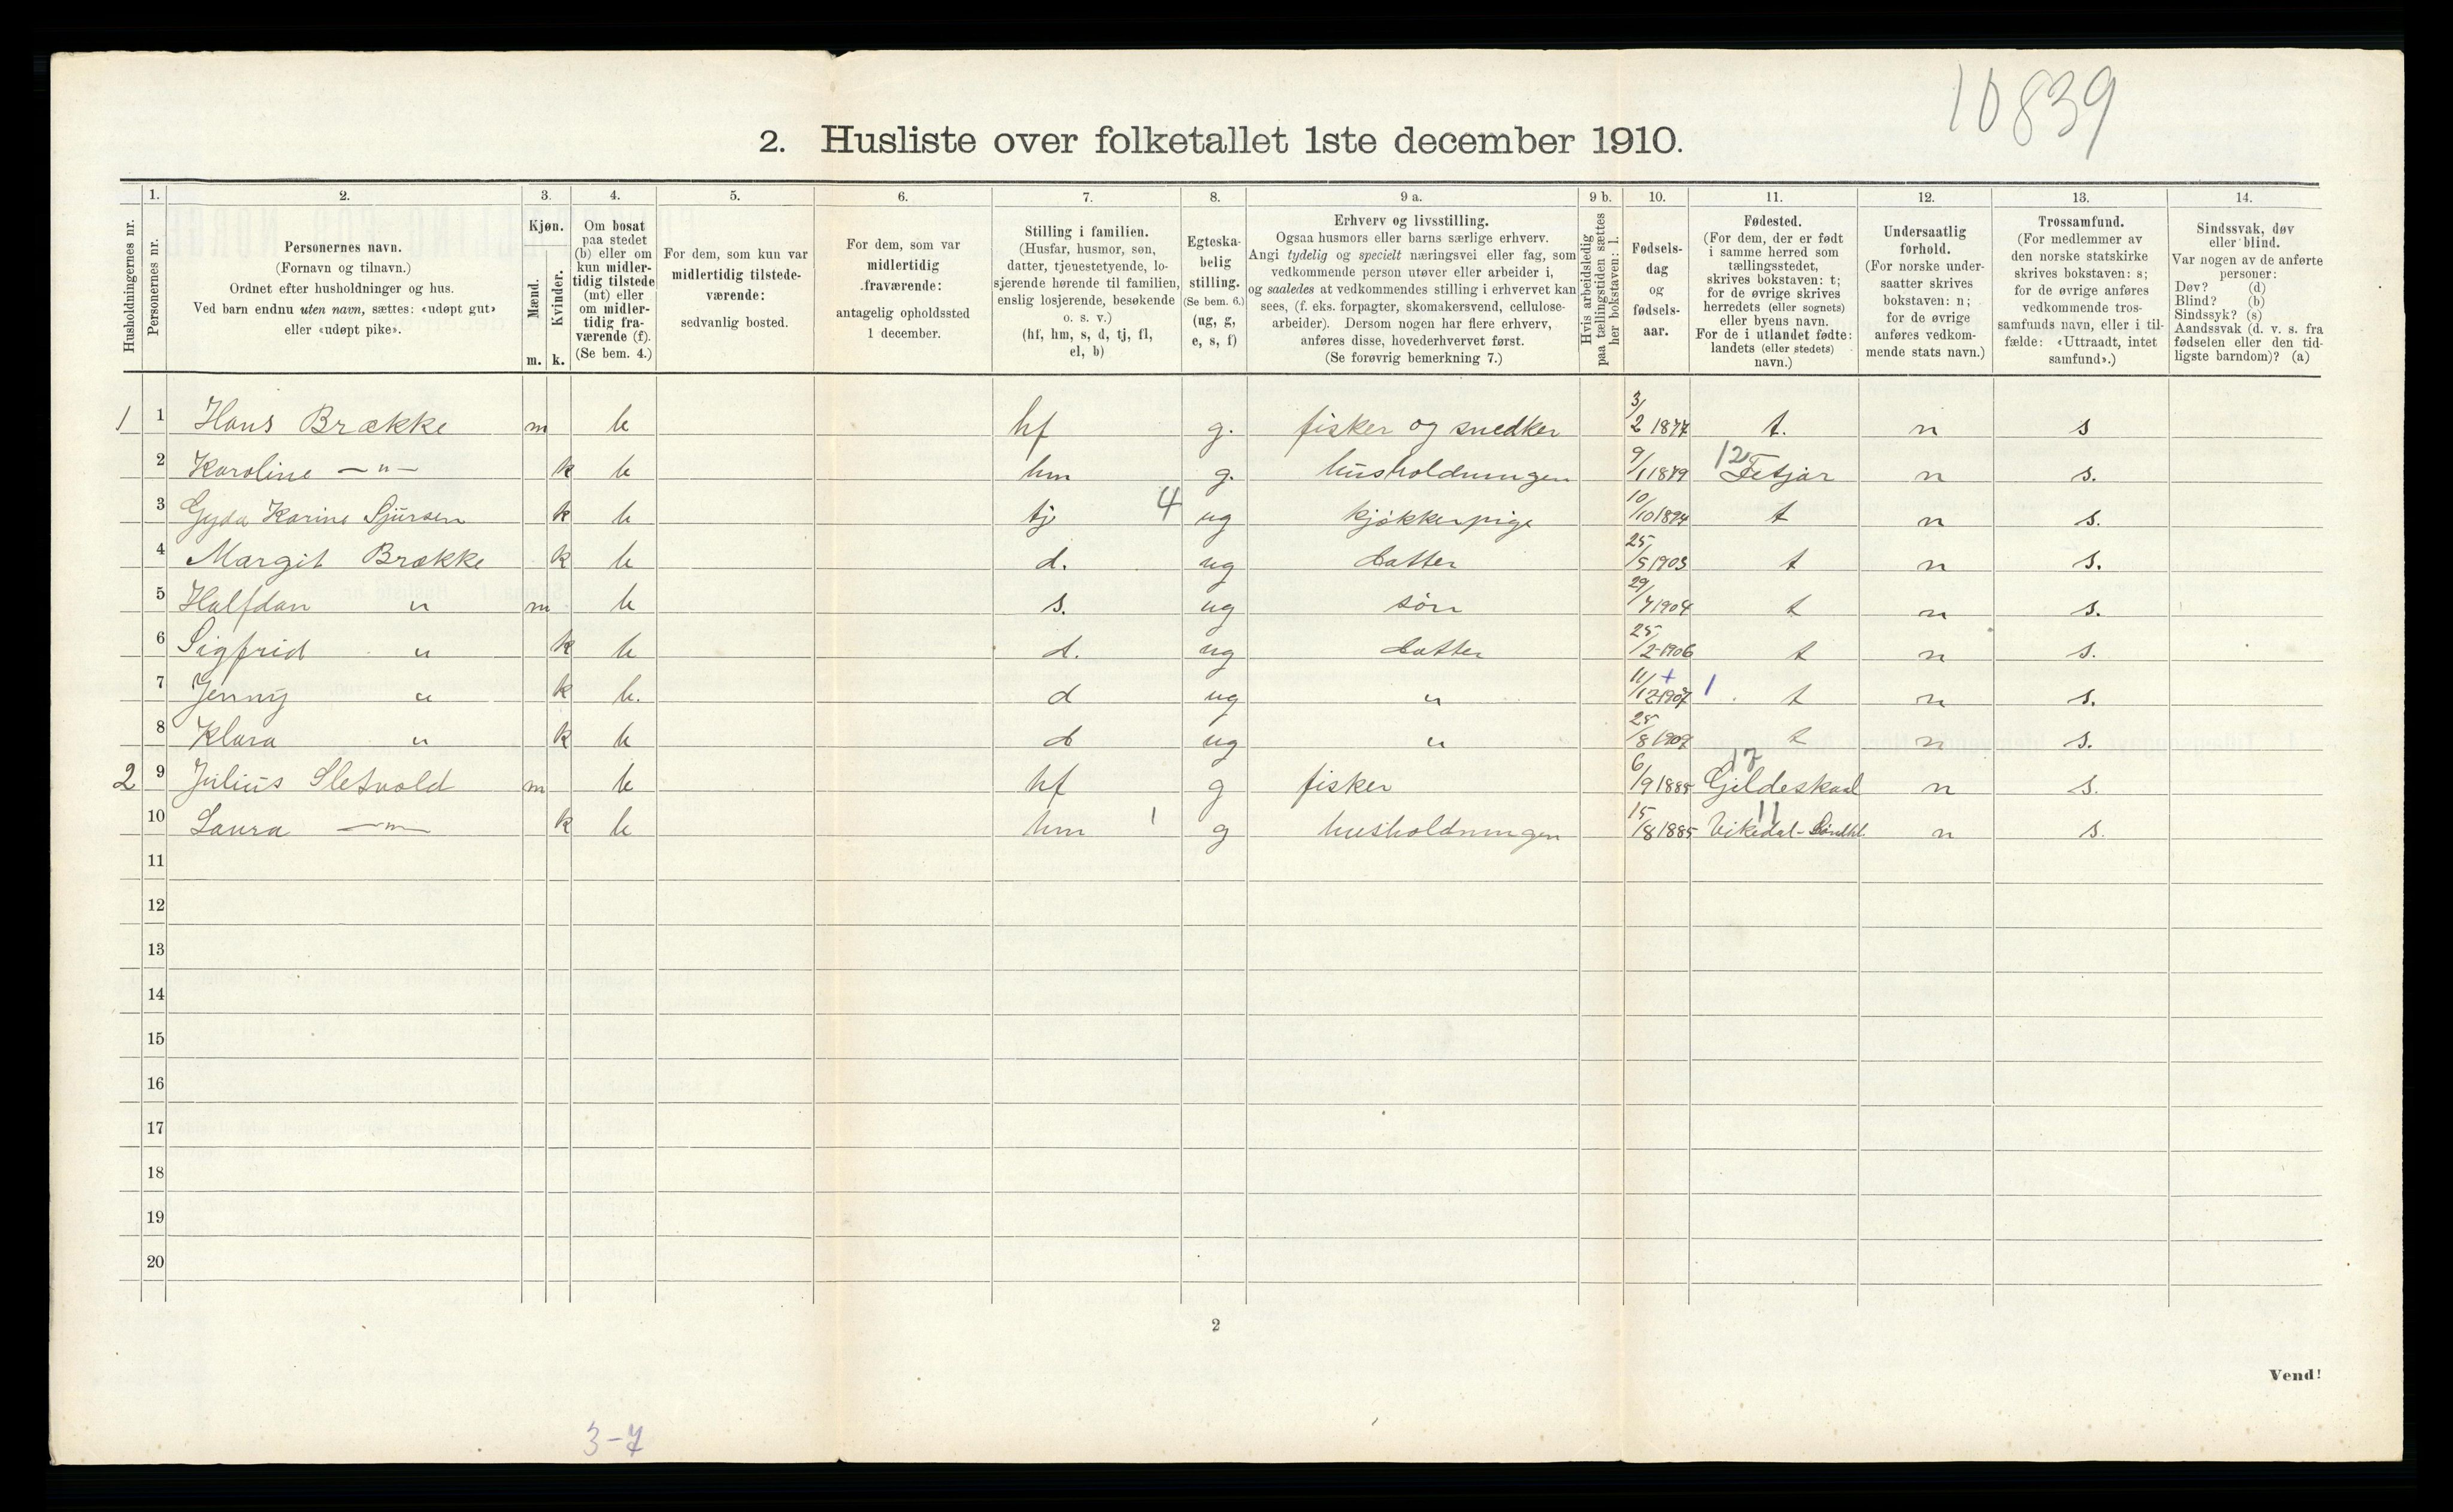 10839
2. Husliste over folketallet 1ste december 1910.
Husholdningernes nr.
1. Personernes nr.
2. Personernes navn. (Fornavn og tilnavn.) Ordnet efter husholdninger og hus. Ved barn endnu uten navn, sættes: «udøpt gut» eller «udøpt pike».
3. Kjøn. Mænd. m. Kvinder. k.
4. Om bosat paa stedet (b) eller om kun midlertidig tilstede (mt) eller om midlertidig fraværende (f). (Se bem. 4.)
5. For dem, som kun var midlertidig tilstedeværende: sedvanlig bosted.
6. For dem, som var midlertidig fraværende: antagelig opholdssted 1 december.
7. Stilling i familien. (Husfar, husmor, søn, datter, tjenestetyende, losjerende hørende til familien, enslig losjerende, besøkende o. s. v.) (hf, hm, s, d, tj, fl, el, b)
8. Egteskabelig stilling. (Se bem. 6.) (ug, g, e, s, f)
9 a. Erhverv og livsstilling. Ogsaa husmors eller barns særlige erhverv. Angi tydelig og specielt næringsvei eller fag, som vedkommende person utøver eller arbeider i, og saaledes at vedkommendes stilling i erhvervet kan sees, (f. eks. forpagter, skomakersvend, cellulosearbeider). Dersom nogen har flere erhverv, anføres disse, hovederhvervet først. (Se forøvrig bemerkning 7.)
9 b. Hvis arbeidsledig paa tællingstiden sættes her bokstaven: l.
10. Fødselsdag og fødselsaar.
11. Fødested. (For dem, der er født i samme herred som tællingsstedet, skrives bokstaven: t; for de øvrige skrives herredets (eller sognets) eller byens navn. For de i utlandet fødte: landets (eller stedets) navn.)
12. Undersaatlig forhold. (For norske undersaatter skrives bokstaven: n; for de øvrige anføres vedkommende stats navn.)
13. Trossamfund. (For medlemmer av den norske statskirke skrives bokstaven: s; for de øvrige anføres vedkommende trossamfunds navn, eller i tilfælde: «Uttraadt, intet samfund».)
14. Sindssvak, døv eller blind. Var nogen av de anførte personer: Døv? (d) Blind? (b) Sindssyk? (s) Aandssvak (d. v. s. fra fødselen eller den tidligste barndom)? (a)
1 1 Hans Brække m b hf g. fisker og snedker 3/2 1877 t. n s
2 Karoline —"— k b hm g. husholdningen 9/1 1879 12 n s.
3 Gyda Karine Sjursen k b tj 4 ug kjøkkenpige 10/10 1894 t n s.
4 Margit Brække k b d. ug datter 25/5 1903 t n s.
5 Halfdan " m b s. ug søn 29/7 1904 t n s.
6 Sigfrid " k b d. ug datter 25/2-1906 t n s.
7 Jenny " k b. d ug " 11/12 1907 + 1 t n s.
8 Klara " k b d ug " 25/8 1909 t n s.
2 9 Julius Sletvold m b hf g fisker 6/9 1885 17 Gildeskaal n s.
10 Laura —"— k b hm 1 g husholdningen 15/8 1885 11 Vikedal- n s.
11
12
13
14
15
16
17
18
19
20
2
Vend!
3-7